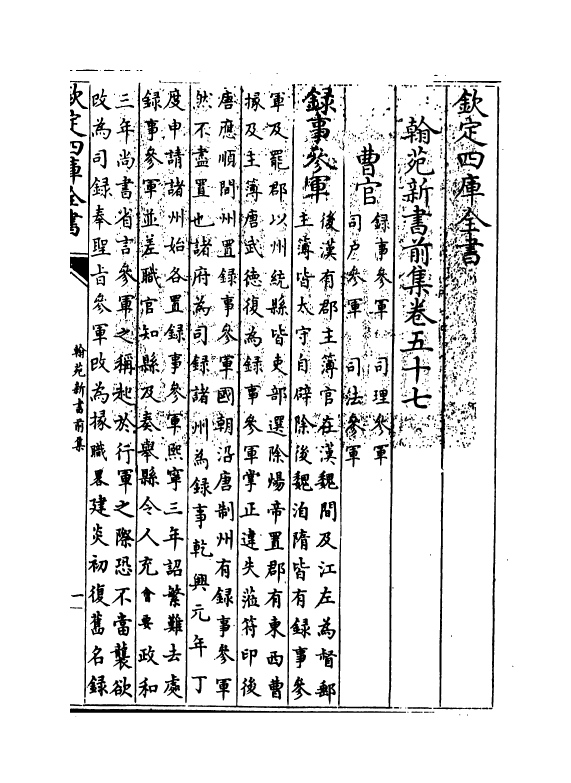 欽定四庫全書
翰苑新書前集卷五十七
曹官
録事參軍 司理參軍
司户參軍 司法參軍
録事參軍
後漢有郡主簿官在漢魏間及江左為督郵
主簿皆太守自辟除後魏洎隋皆有録事參
軍及罷郡以州統縣皆吏部選除煬帝置郡有東西曹
掾及主簿唐武德復為録事參軍掌正違失蒞符印後
唐應順間州置録事參軍國朝沿唐制州有録事參軍
然不盡置也諸府為司録諸州為録事乾興元年丁
度申請諸州始各置録事參軍熙寧三年詔繁難去處
録事參軍並差職官知縣及奏舉縣令人充會要政和
三年尚書省言參軍之稱起於行軍之際恐不當襲欲
改為司録奉聖旨參軍改為掾職畧建炎初復舊名録
欽定四庫全書
翰苑新書前集
一